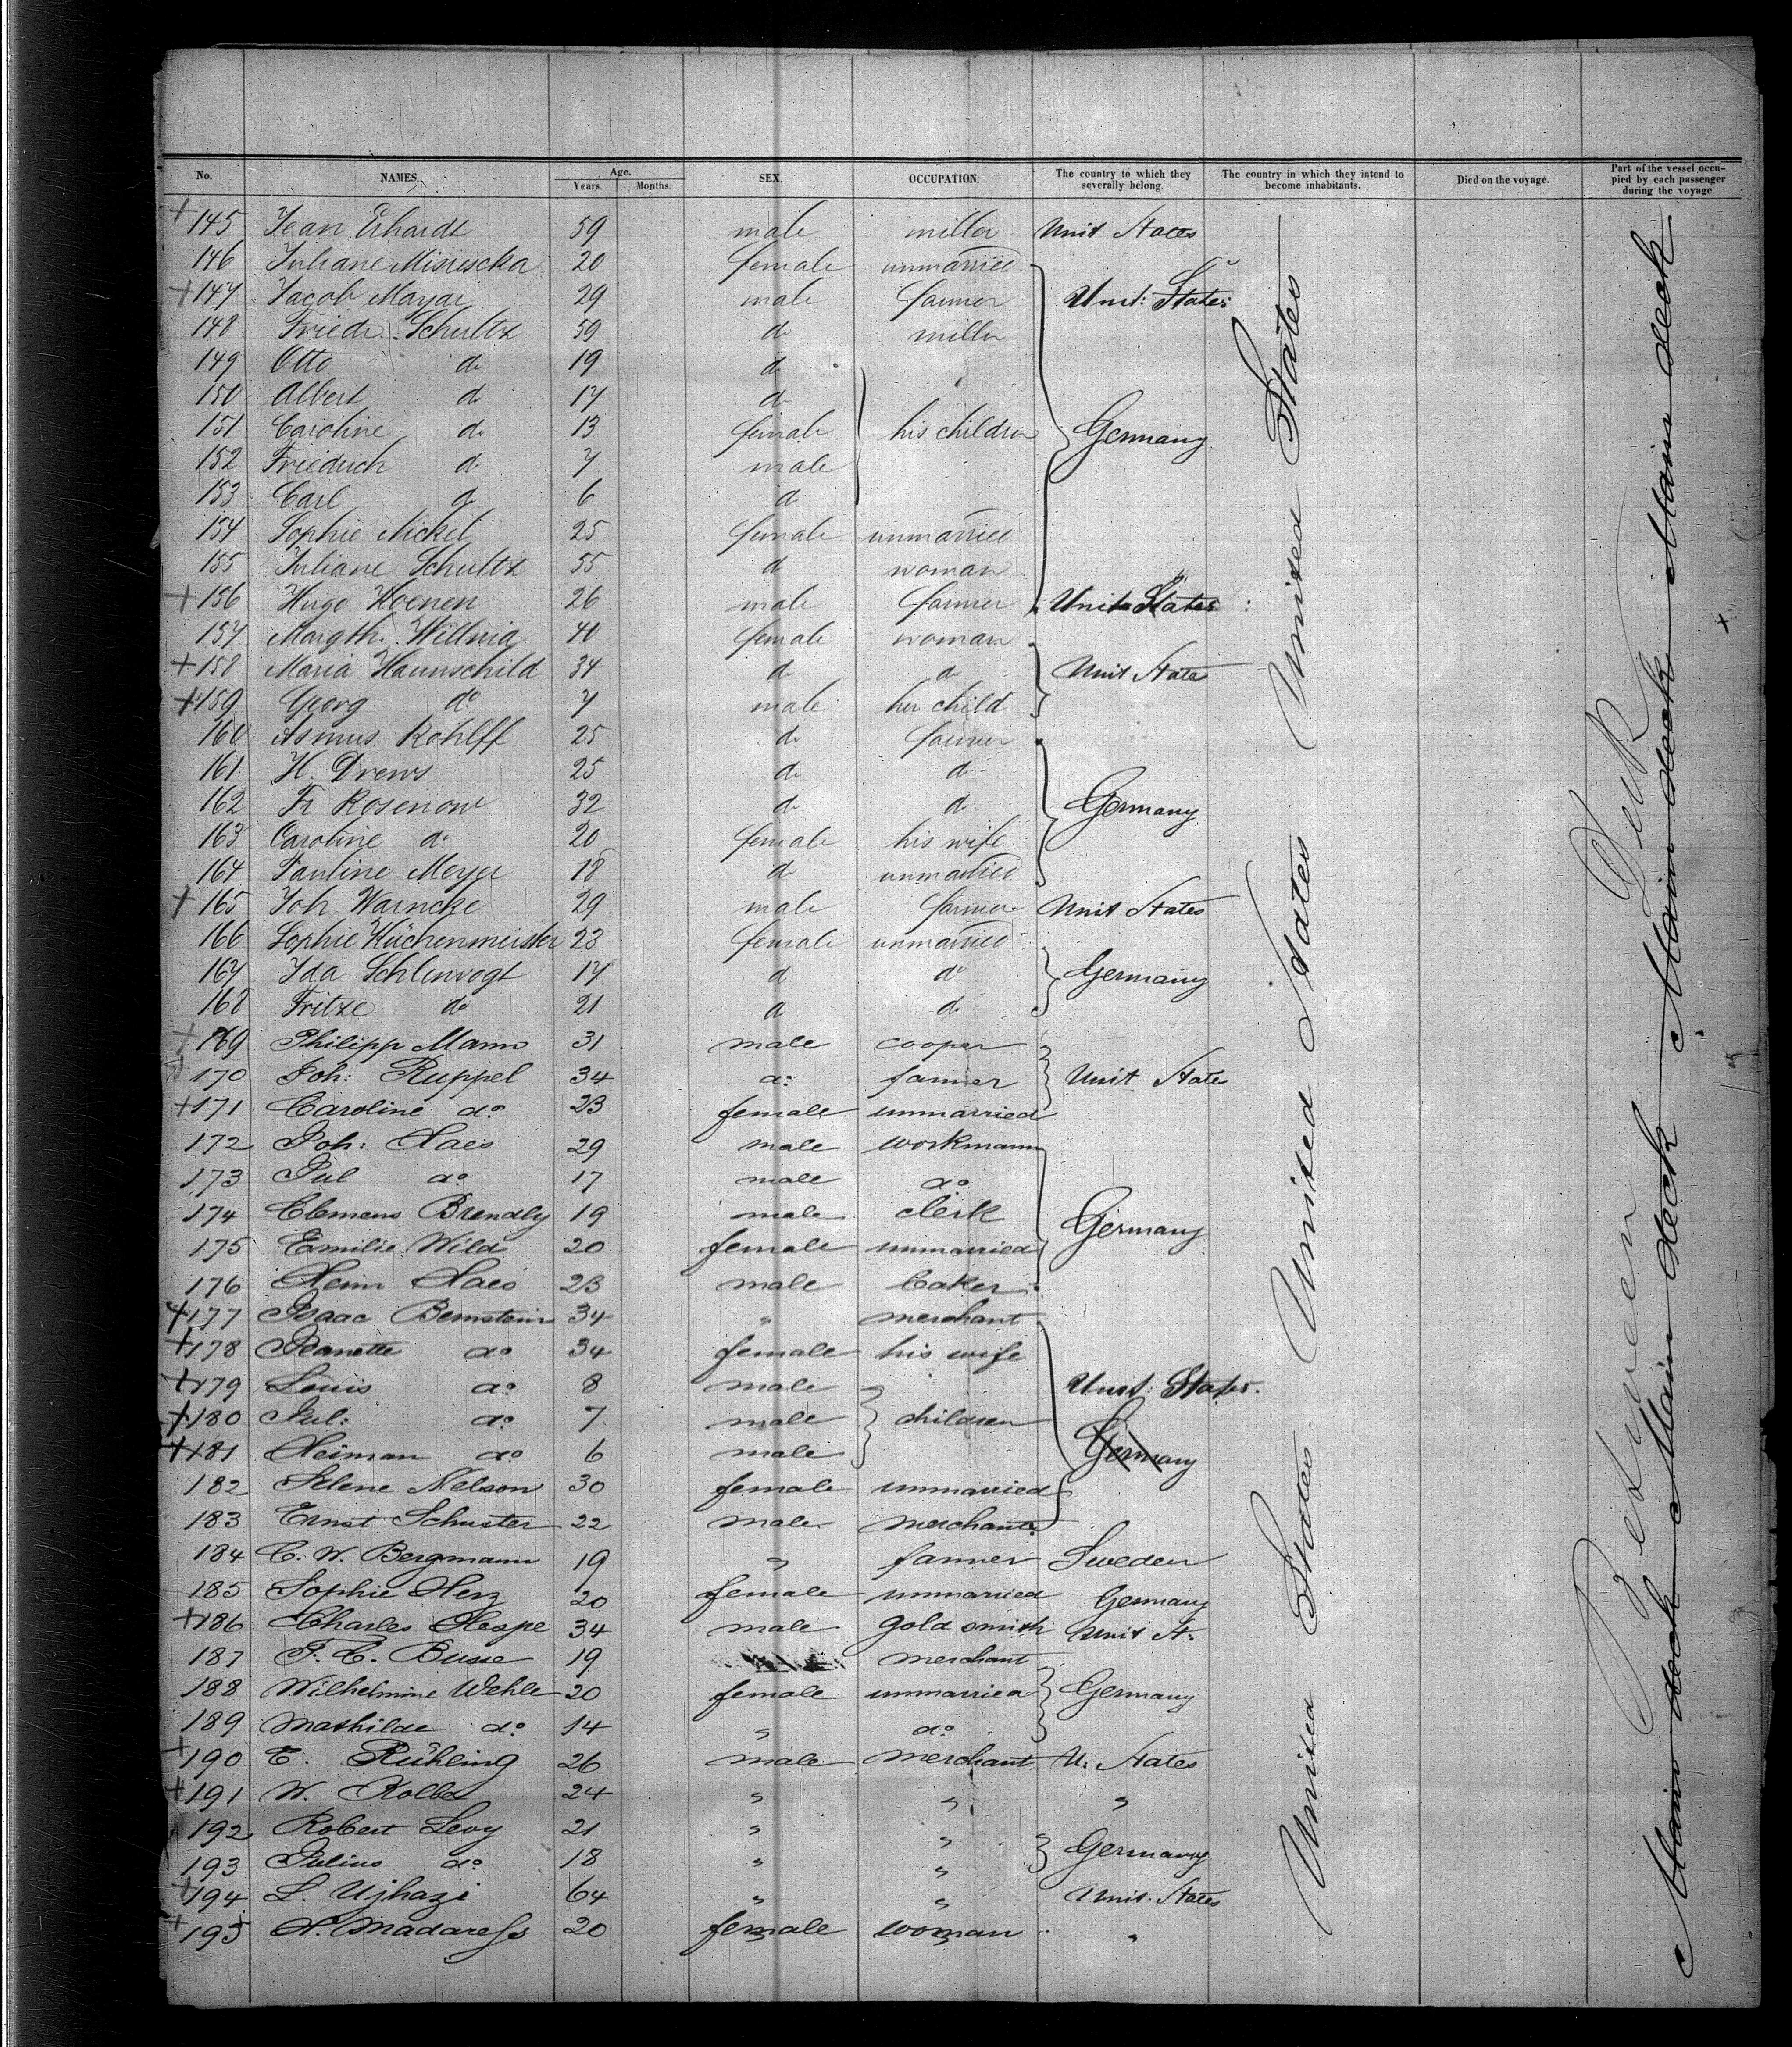 No. NAMES. Age. Years. Months. SEX. OCCUPATION. The country to which they severally belong. The country in which they intend to become inhabitants. Died on the voyage. Part of the vessel occupied by each passenger during the voyage.
+ 145 Jean Erhardt 59 male miller Unit States
146 Juliane Misiescka 20 female unmarried
+ 147 Jacob Mayer 29 male farmer Unit: States
148 Friedr. Schultz 59 do miller
149 Otto do 19 do
150 Albert do 17 do
151 Caroline do 13 female his children Germany
152 Friedrich do 7 male
153 Carl do 6 d
154 Sophie Nickel 25 female unmarried
155 Juliane Schultz 55 d woman
+ 156 Hugo Koenen 26 male farmer Unit States
157 Margth. Willnig 40 female woman
+ 158 Maria Haunschild 34 d d Unit States
+ 159 Georg do 7 male her child
160 Asmus Rohlff 25 do farmer
161 H. Drews 25 do do
162 Fr Rosenow 32 do d Germany
163 Caroline do 20 female his wife
164 Pauline Meyer 18 d unmarried
+ 165 Joh. Warncke 29 male farmer Unit States
166 Sophie Küchenmeister 23 female unmarried
167 Ida Schlenvogt 17 d do Germany
168 Fritze do 21 d do
+ 169 Philipp Mann 31 male cooper
170 Joh: Ruppel 34 do: farmer Unit State
+ 171 Caroline do 23 female unmarried
172 Joh: Haes 29 male workmann
173 Jul do 17 male do
174 Clemens Brendly 19 male clerk Germany
175 Emilie Wild 20 female unmarried
176 Heinr Haes 23 male baker
+ 177 Isaac Bernstein 34 " merchant
+ 178 Jeanette do 34 female his wife
+ 179 Louis do 8 male Unit: States.
+ 180 Jul: do 7 male children
+ 181 Heiman do 6 male Germany
182 Helene Nelson 30 female unmarried
183 Ernst Schuster 22 male merchant
184 C. W. Bergmann 19 " farmer Sweden
185 Sophie Herz 20 female unmarried Germany
+ 186 Charles Hespe 34 male gold smith Unit St:
187 F. C. Busse 19 merchant
188 Wilhelmine Wehle 20 female unmarried Germany
189 Mathilde do 14 " do
+ 190 C. Rühling 26 male merchant U: States
+ 191 W. Kolbe 24 " " "
192 Robert Levy 21 " "
193 Julius do 18 " " Germany
+ 194 L. Ujhazi 64 " " Unit. States
+ 195 H. Madarass 20 female woman "
United States United States United States
Between Deck
Main deck Main deck Main deck Main deck